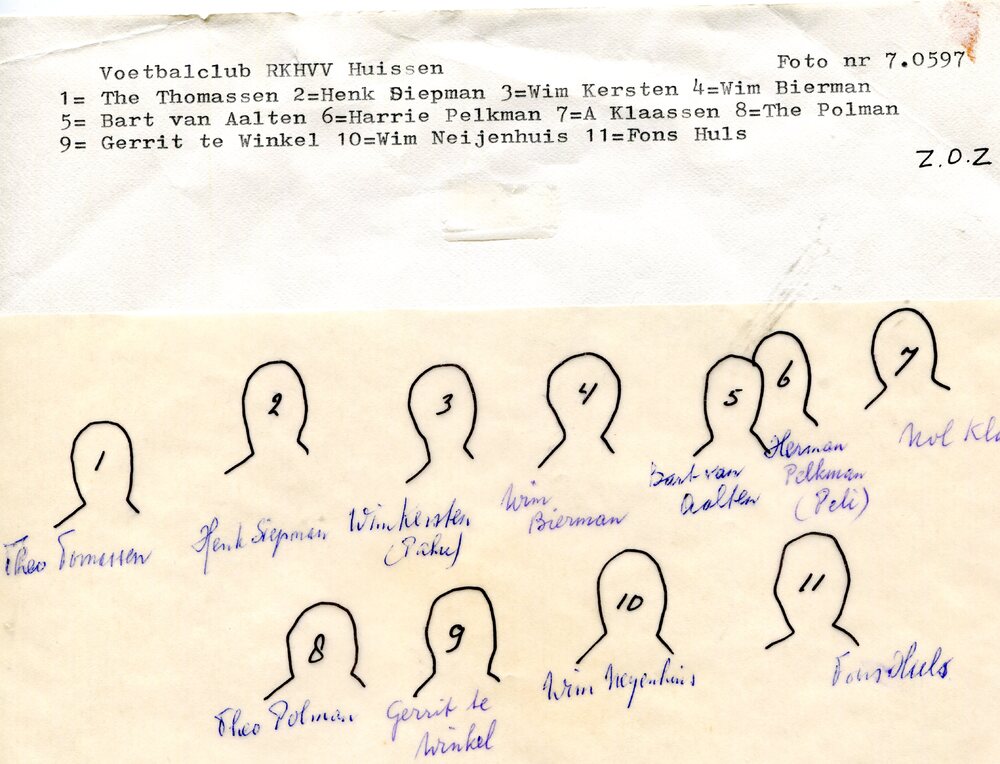 Voetbalclub RKHVV Huissen
Foto nr 7.0597
1= The Thomassen 2=Henk Siepman 3=Wim Kersten 4=Wim Bierman
5= Bart van Aalten 6=Harrie Pelkman 7=A Klaassen 8=The Polman
9= Gerrit te Winkel 10=Wim Neijenhuis 11=Fons Huls
Z.O.Z
1
2
3
4
5
6
7
Theo Tomassen
Henk Siepman
Wim Kersten
(Pahu)
Wim
Bierman
Bart van
Aalten
Herman
Pelkman
(Peli)
Nol Kla
8
9
10
11
Theo Polman
Gerrit te
Winkel
Wim Neyenhuis
Fons Huls